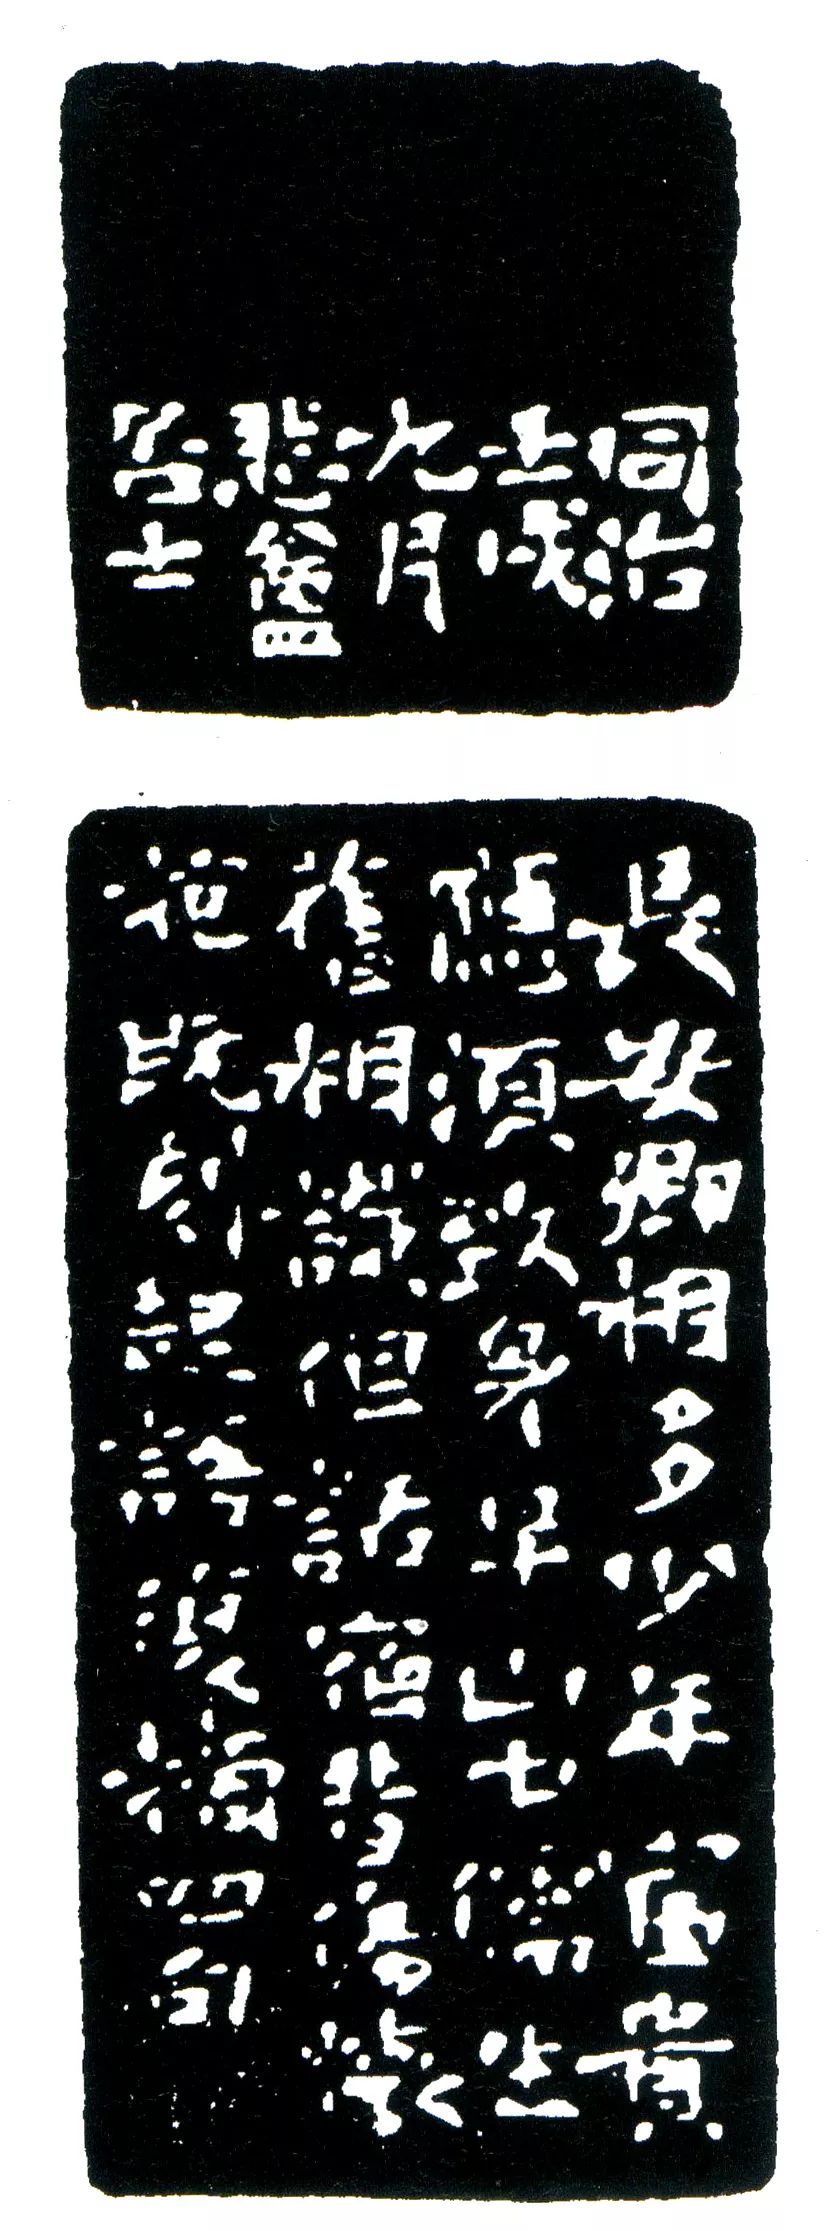 同治
壬戌
九月
悲盦
居士
長安卿相多少年富貴
應須致身早山中儒生
舊相識但話宿昔傷懷
抱既刻起語復補四句